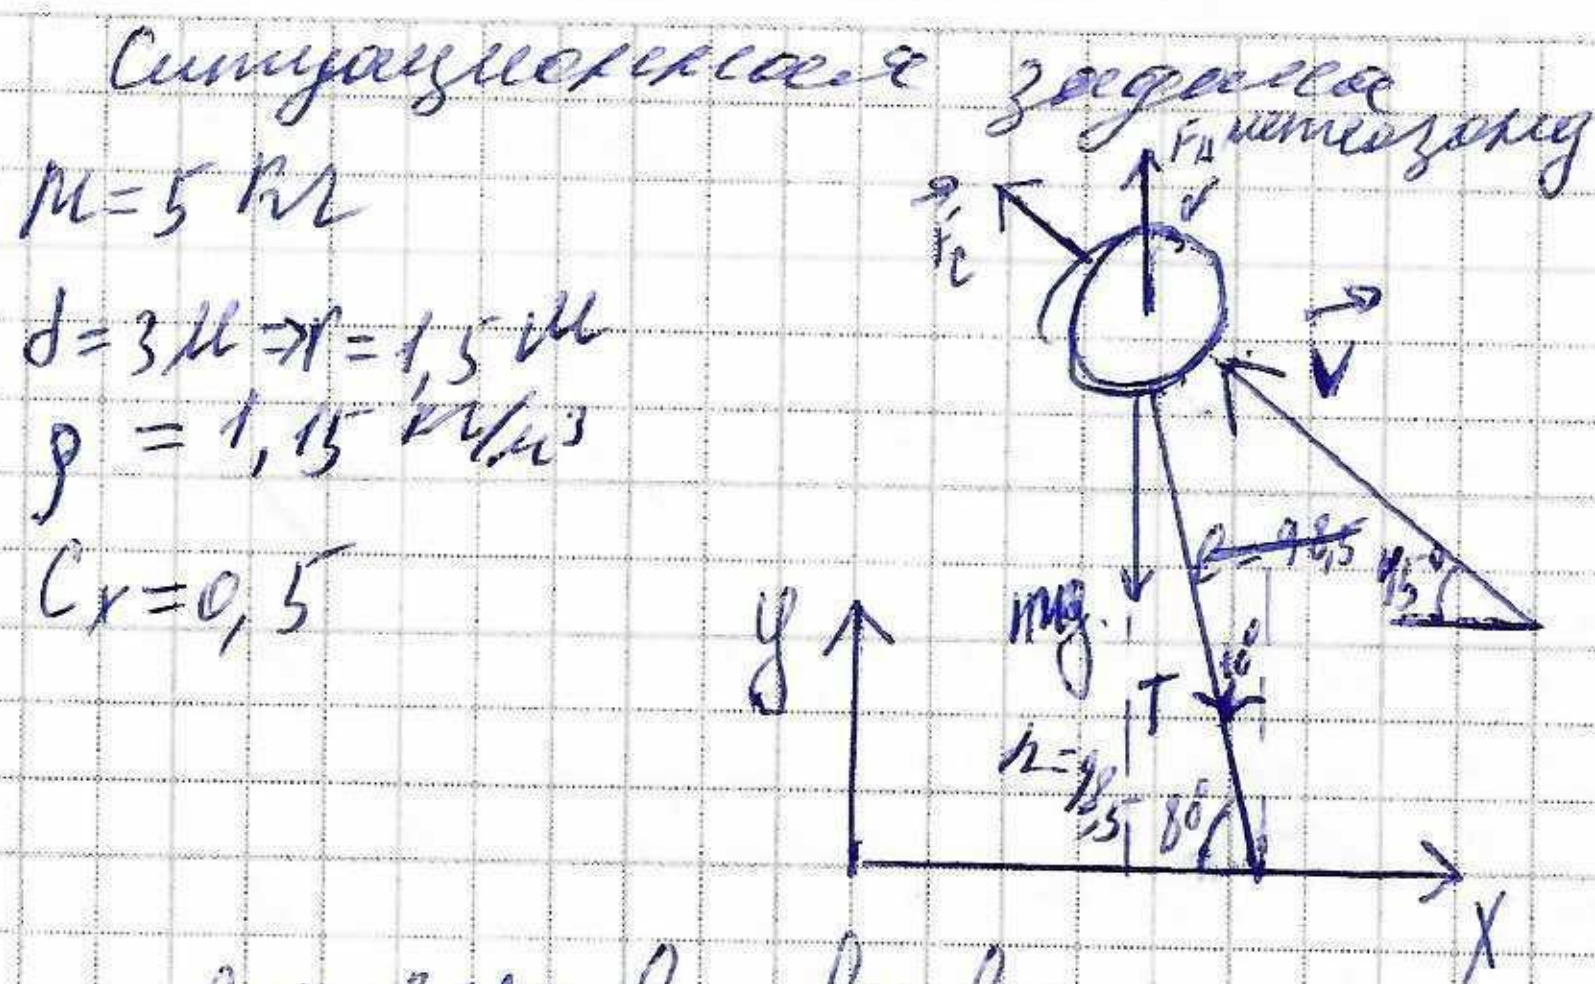 Ситуационная задача
метеозонд
m = 5 кг
d = 3 м ⇒ r = 1,5 м
ρ = 1,15 кг/м³
Cx = 0,5
F_A
F_c
V
ℓ = 98,5
45°
mg
10°
T
h = 98,5
80°
y
X